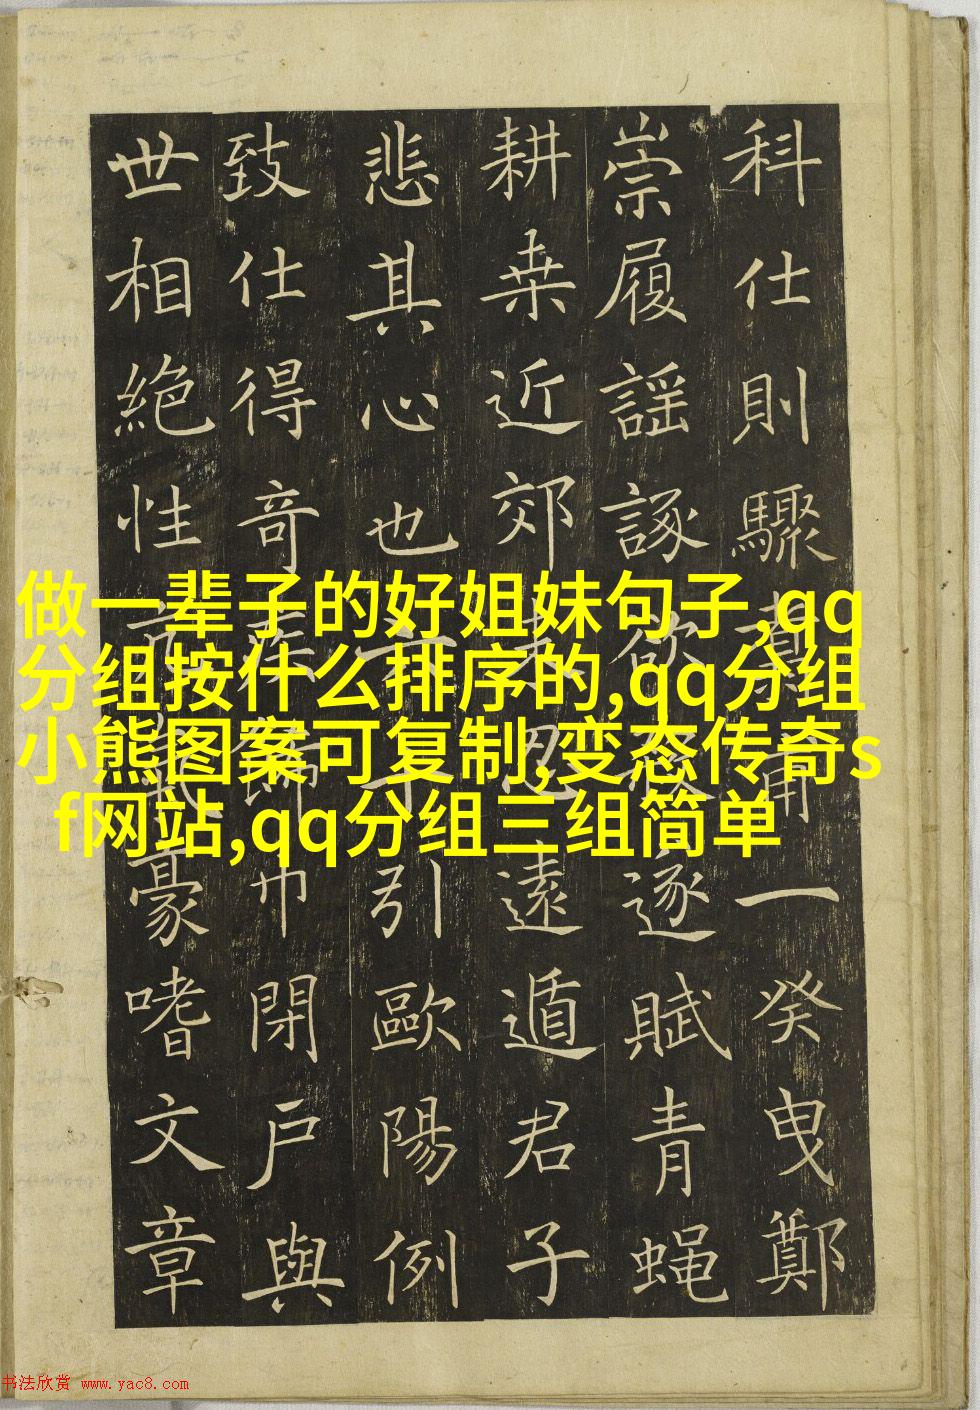 科仕則驟一癸曳鄭
崇履謡諑欲逐賦青蝇
耕桒近郊遠遁君子
悲其心也引歐陽例
致仕得奇疾巾閉戶與
世相絶性豪嗜文章
做一辈子的好姐妹句子,qq
分组按什么排序的,qq分组
小熊图案可复制,变态传奇s
f网站,qq分组三组简单
书法欣赏 www.yac8.com